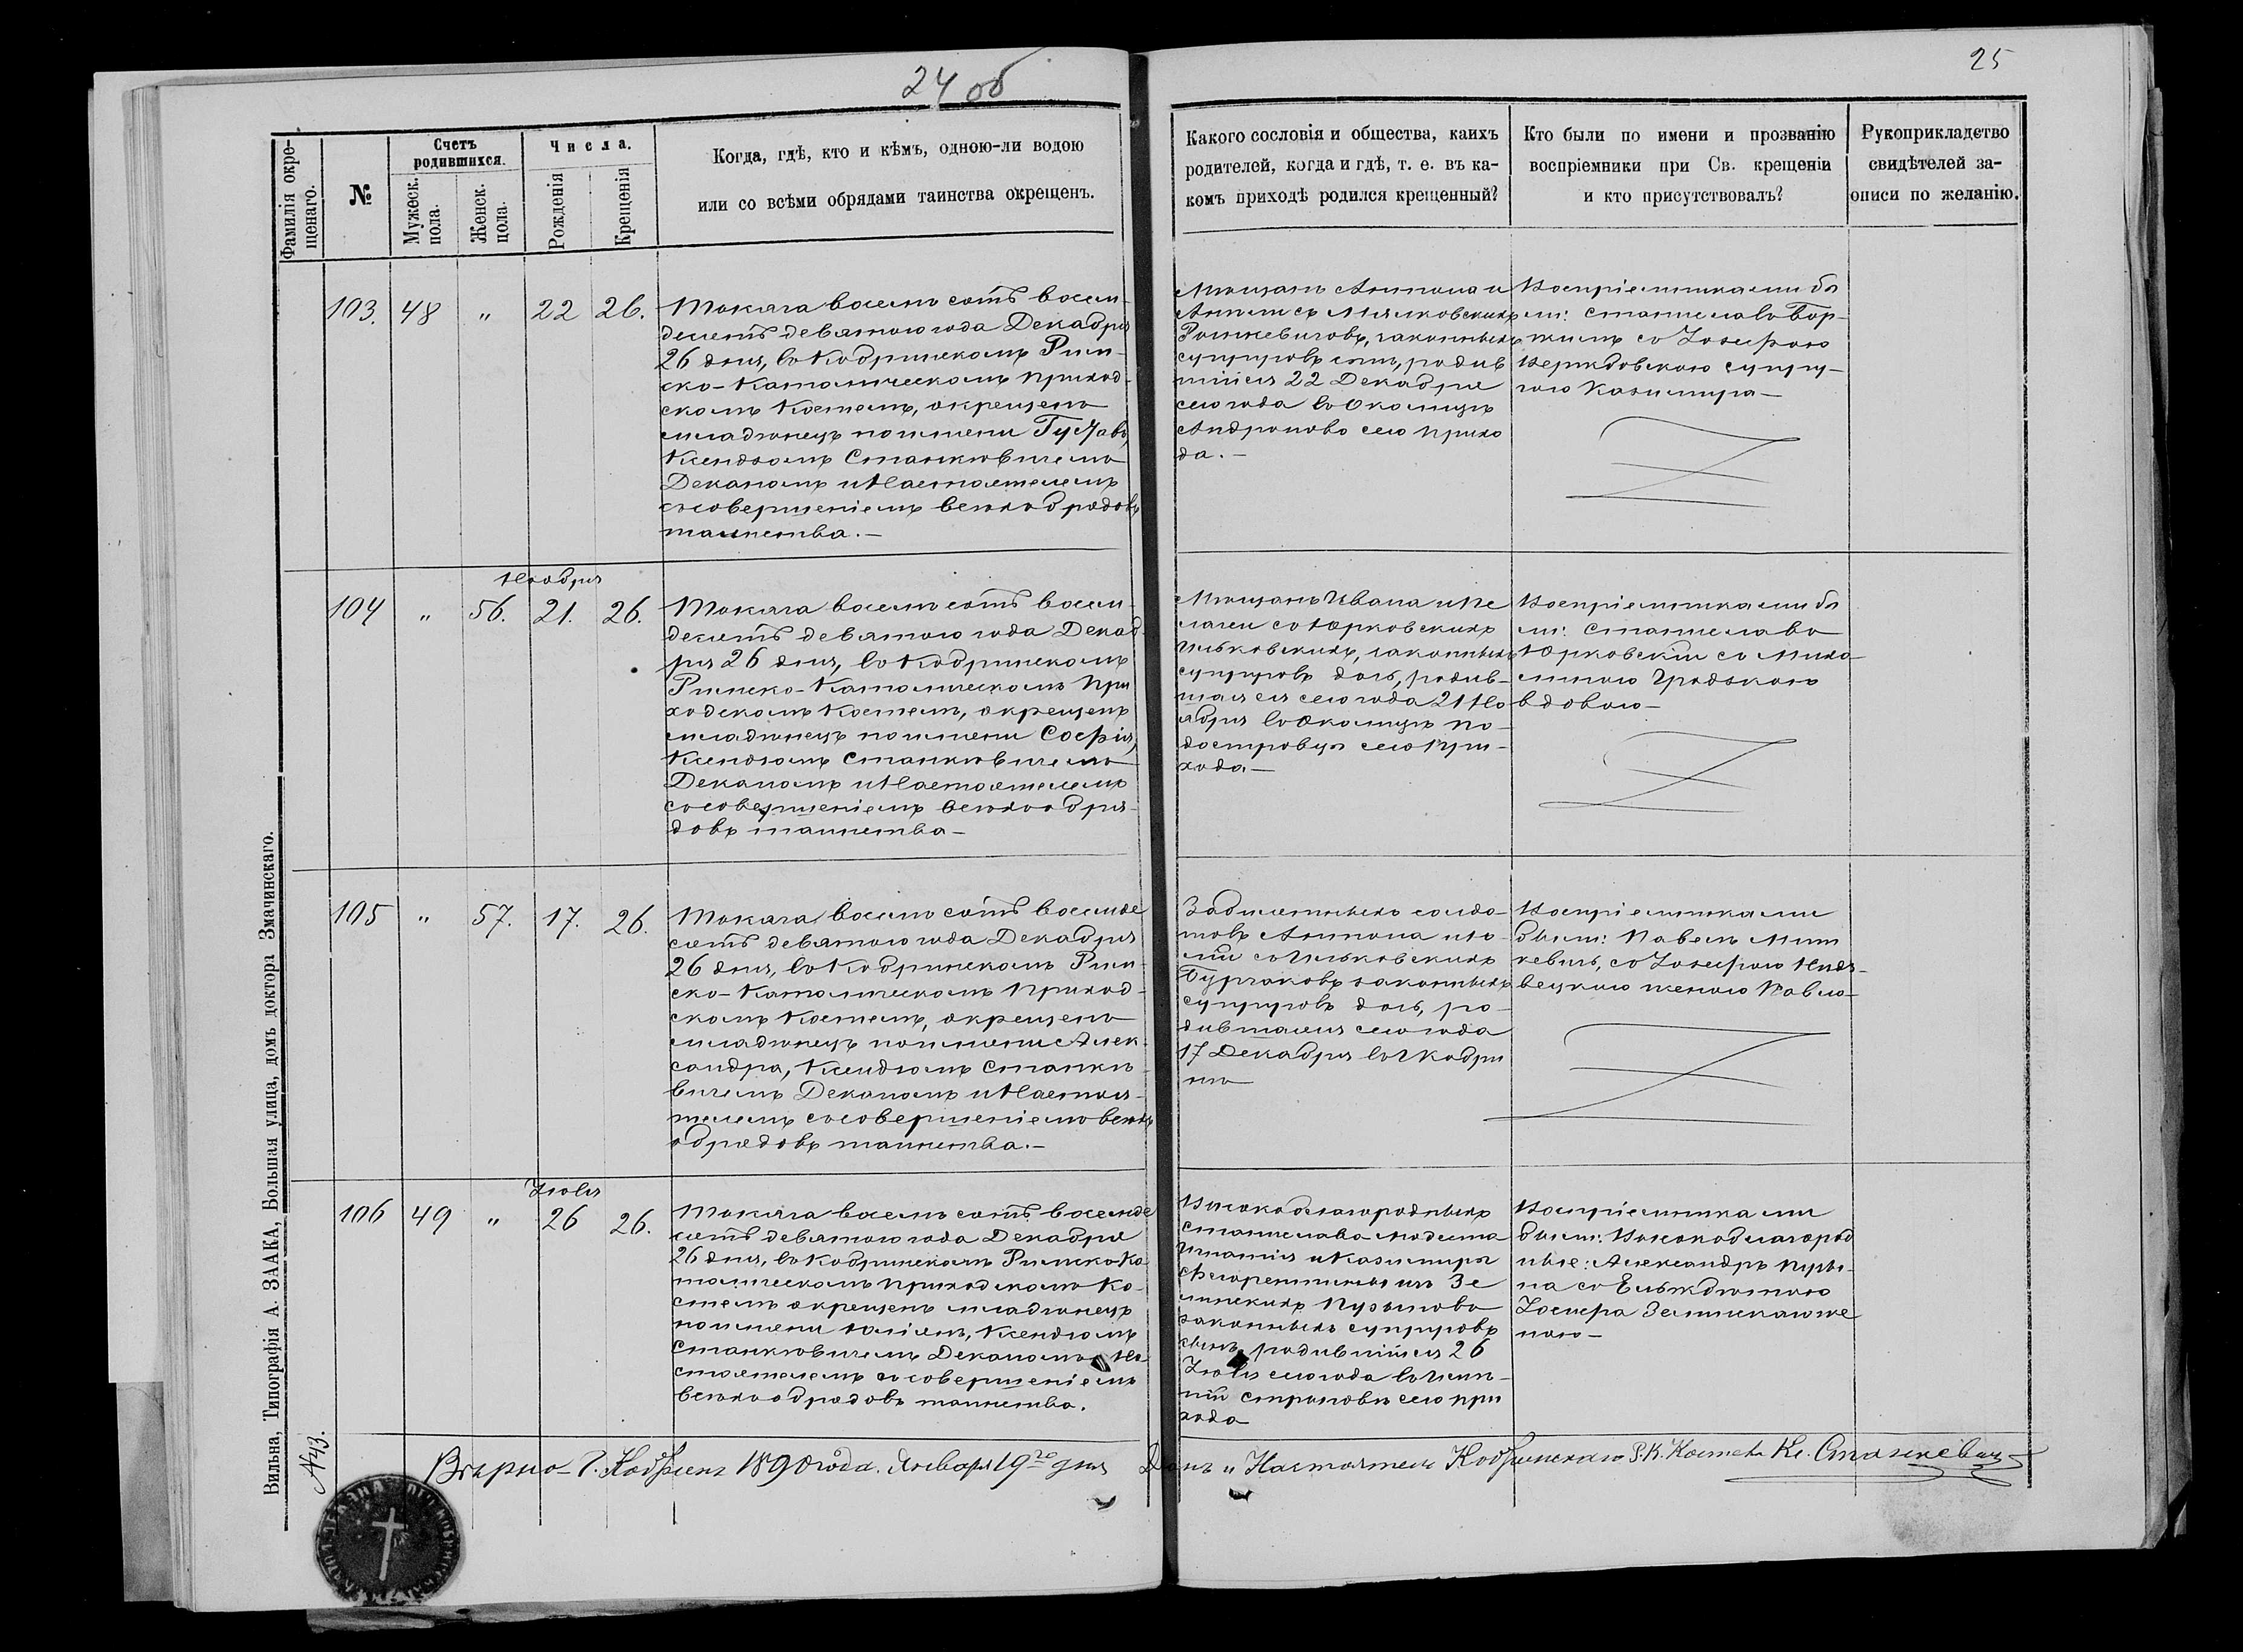 24 об
25
Фамилія окре-
щенаго.
№
Счетъ
родившихся.
Мужеск.
пола.
Женск.
пола.
Числа.
Рожденія
Крещенія
Когда, гдѣ, кто и кѣмъ, одною-ли водою
или со всѣми обрядами таинства окрещенъ.
Какого сословія и общества, каихъ
родителей, когда и гдѣ, т. е. въ ка-
комъ приходѣ родился крещенный?
Кто были по имени и прозванію
воспріемники при Св. крещеніи
и кто присутствовалъ?
Рукоприкладство
свидѣтелей за-
описи по желанію.
103. 48 " 22 26.
Тысяча восемь сотъ восем-
десятъ девятого года Декабря
26 дня, въ Кобринскомъ Рим-
ско-Католическомъ приход-
скомъ Костелѣ, окрещенъ
младенецъ по имени Густавъ,
Ксендзомъ Станкевичемъ
Деканомъ и Настоятелемъ
съ совершеніемъ всѣхъ обрядовъ
таинства.—
Мѣщанъ Антона и
супруговъ сынъ, родив
шійся 22 Декабря
сего года въ Околицѣ
Андроново сего прихо
да.—
Воспріемниками бы
ли: Станиславъ
съ Іозефою
супру-
гою Казимира—
Ноября
104 " 56. 21. 26.
Тысяча восемь сотъ восем-
десятъ девятого года Декаб-
ря 26 дня, въ Кобринскомъ
Римско-Католическомъ При
ходскомъ Костелѣ, окрещенъ
младенецъ по имени Софія,
Ксендзомъ Станкевичемъ
Деканомъ и Настоятелемъ
съ совершеніемъ всѣхъ обря-
довъ таинства—
Мѣщанъ Ивана и Пе
лагеи съ Юрковскихъ
Ильковскихъ, законныхъ
супруговъ дочь, родив-
шаяся сего года 21 Но
ября въ Околицѣ
сего При-
хода.—
Воспріемниками бы
ли: Станиславъ
Юрковскій съ
вдовою—
105 " 57. 17. 26.
Тысяча восемь сотъ восемде
сятъ девятого года Декабря
26 дня, въ Кобринскомъ Рим-
ско-Католическомъ Приход-
скомъ Костелѣ, окрещенъ
младенецъ по имени Алек-
сандра, Ксендзомъ Станке-
вичемъ Деканомъ и Настоя-
телемъ съ совершеніемъ всѣхъ
обрядовъ таинства.—
Забилетныхъ солда-
товъ Антона и Ю-
ліи съ Ильковскихъ
законныхъ
супруговъ дочь, ро-
дившаяся сего года
17 Декабря въ г Кобри
нѣ
Воспріемниками
были: Павелъ Миш
кевичъ, съ Іозефою
женою Павла—
Іюля
106 49 " 26 26.
Тысяча восемь сотъ восемде
сятъ девятого года Декабря
26 дня, въ Кобринскомъ Римско-Ка
толическомъ приходскомъ Ко-
стелѣ окрещенъ младенецъ
по имени Юлій, Ксендзомъ
Станкевичемъ Деканомъ и На-
стоятелемъ съ совершеніемъ
всѣхъ обрядовъ таинства.
Высокоблагородныхъ
Станислава Модеста
Игнатія и Казимиры
Флорентины изъ Зе
линскихъ Пузыновъ
законныхъ супруговъ
сынъ, родившійся 26
Іюля сего года въ Имѣ-
ніи сего при
хода
Воспріемниками
были: Высокоблагород
ные: Александръ Пузы-
на съ Ельжбѣтою
Іосифа Зелинскаго же
ною—
№43.
Вѣрно— Г. Кобринъ 1890 года. Января 19го дня Деканъ и Настоятель Кобринскаго Р.К. Костела Кс. Станкевичъ
Вильна, Типографія А. ЗААКА, Большая улица, домъ доктора Змачинскаго.